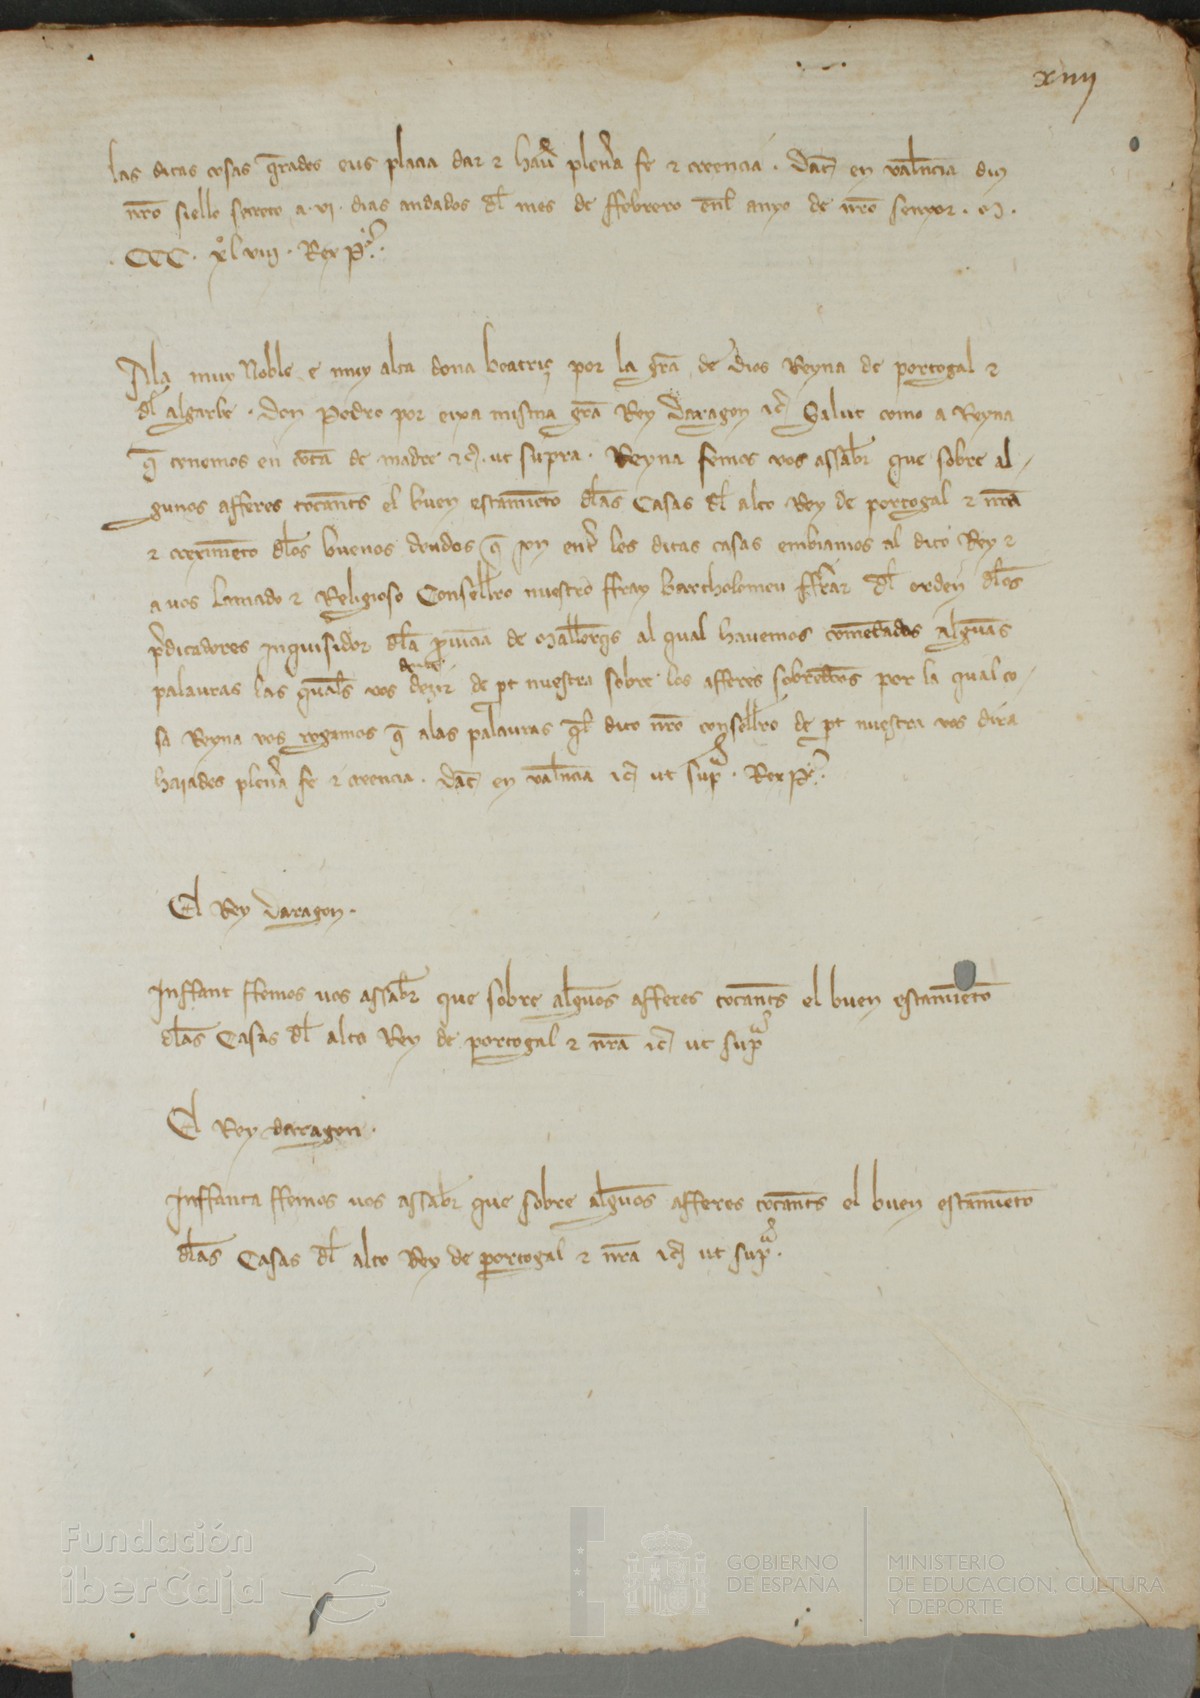 xiiij
las ditas cosas q̄rades eus placia dar ⁊ hau̾ plen̾a fe ⁊ creencia . Dat̄ en Val̄encia diu
nr̄o siello secreto a .vi. dias andados dl̄ mes de ffebrero enl̄ anyo de nr̄o senyor . M .
CCC . xl viij . Rex P .
Ala muy Noble e muy alta dona beatriç por la gr̄a de dios Reyna de portogal ⁊
dl̄ algarbe . Don Pedro por eixa misma gr̄a Rey daragon ⁊c̄ Salut como a Reyna
q̄ tenemos en de madre ⁊c̄ . ut supra . Reyna femos vos assab̾r que sobre al-
gunos afferes tocan̄ts el buen estamīento dl̄as Casas dl̄ alto Rey de portogal ⁊ nr̄a
⁊ creximēto dl̄os buenos deudos q̄ son ent̾ les ditas casas embiamos al dito Rey ⁊
a vos Lamado ⁊ Religioso Consell̄ro nuestro ffray bartholomeu ffr̄ar dl̄ orden dl̄os
p̾dicadores inquisidor dl̄a p̄uīcia de Mall̄orq̄s al qual hauemos comēdadas algūas
palauras las quāls vos deue dezir de pt̄ nuestra sobre los afferes sobred̄tos por la qual co-
sa Reyna vos rogamos q̄ alas palauras q̄l dito nr̄o consell̄ro de pt̄ nuestra vos dira
haiades plen̾a fe ⁊ creencia . Dat̄ en val̄encia ⁊c̄ ut supᵃ . Rex P .
El Rey daragon .
Inffant ffemos uos assab̾r que sobre algūos afferes tocan̄ts el buen estamīeto
dl̄as Casas dl̄ alto Rey de portogal ⁊ nr̄a ⁊c̄ ut supᵃ
El Rey daragon .
Inffanta ffemos uos assab̾r que sobre algūos afferes tocan̄ts el buen estamīeto
dl̄as Casas dl̄ alto Rey de portogal ⁊ nr̄a ⁊c̄ ut supᵃ .
Fundación
iberCaja
GOBIERNO
DE ESPAÑA
MINISTERIO
DE EDUCACIÓN, CULTURA
Y DEPORTE